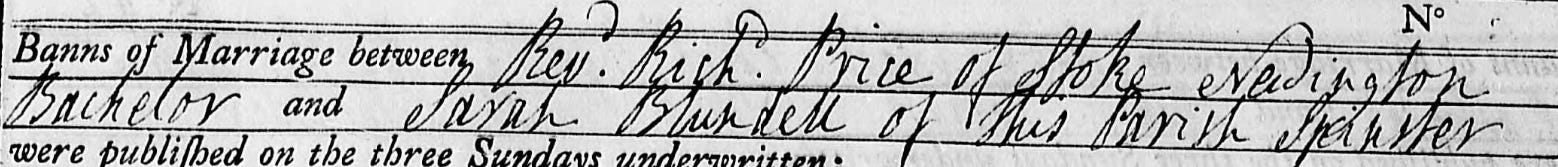 N°
Banns of Marriage between Revd. Richd. Price of Stoke Newington
Bachelor and Sarah Blundell of this Parish Spinster
were publiſhed on the three Sundays underwritten: